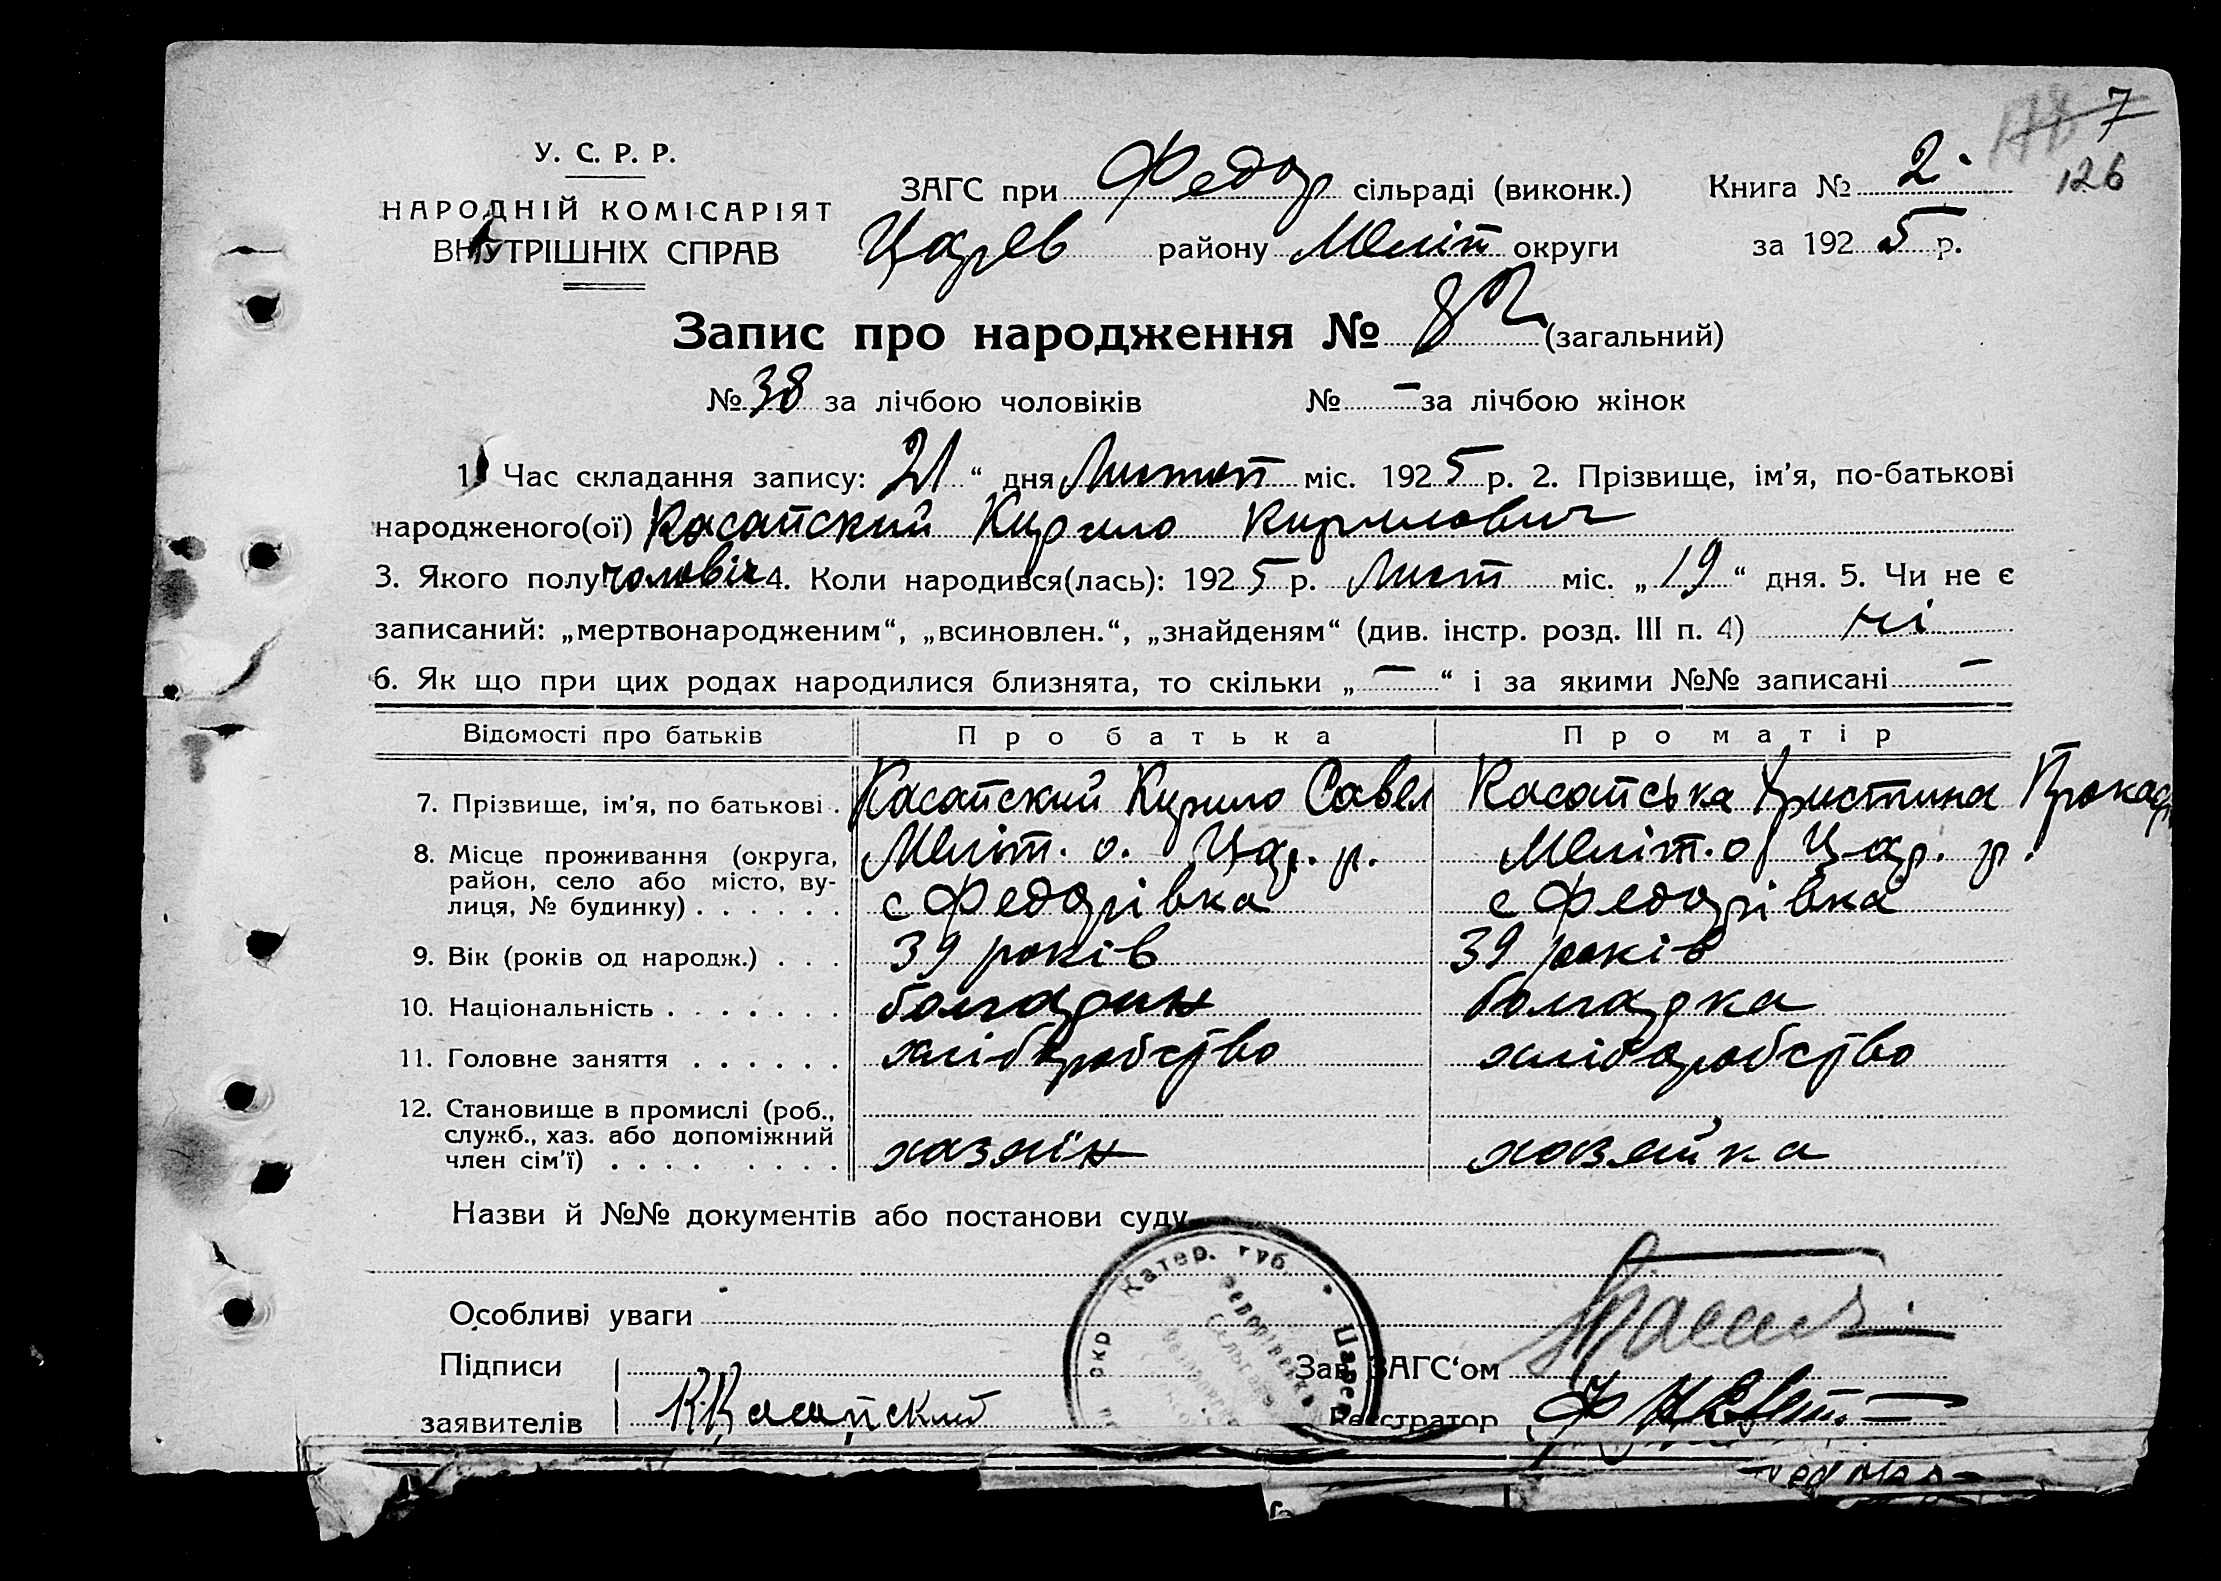 7
126
У. С. Р. Р.
НАРОДНІЙ КОМІСАРІЯТ
ВНУТРІШНІХ СПРАВ
ЗАГС при Федор сільраді (виконк.) Книга № 2.
Царев району Меліт округи за 1925 р.
Запис про народження № 82 (загальний)
№ 38 за лічбою чоловіків № – за лічбою жінок
1. Час складання запису: 21 “ дня Листоп міс. 1925 р. 2. Прізвище, ім’я, по-батькові
народженого(ої) Касапский Кирило Кирилович
3. Якого полу чоловіч 4. Коли народився(лась): 1925 р. Лист міс. „ 19 “ дня. 5. Чи не є
записаний: „мертвонародженим“, „всиновлен.“, „знайденям“ (див. інстр. розд. III п. 4) ні
6. Як що при цих родах народилися близнята, то скільки „ – “ і за якими №№ записані –
Відомості про батьків Про батька Про матір
7. Прізвище, ім’я, по батькові . Касапский Кирило Савел Касапська Христина
8. Місце проживання (округа, район, село або місто, вулиця, № будинку) . . . . . . Меліт. о. Цар. р. Меліт. о Цар. р.
с Федорівка с Федорівка
9. Вік (років од народж.) . . . 39 років 39 років
10. Національність . . . . . . . болгарин болгарка
11. Головне заняття . . . . . . хліборобство хліборобство
12. Становище в промислі (роб., служб., хаз. або допоміжний член сім’ї) . . . . . . . . хазяїн хозяйка
Назви й №№ документів або постанови суду
Катер. губ.
Особливі уваги
Підписи Зав. ЗАГС‘ом
заявителів К. Касапский Реєстратор